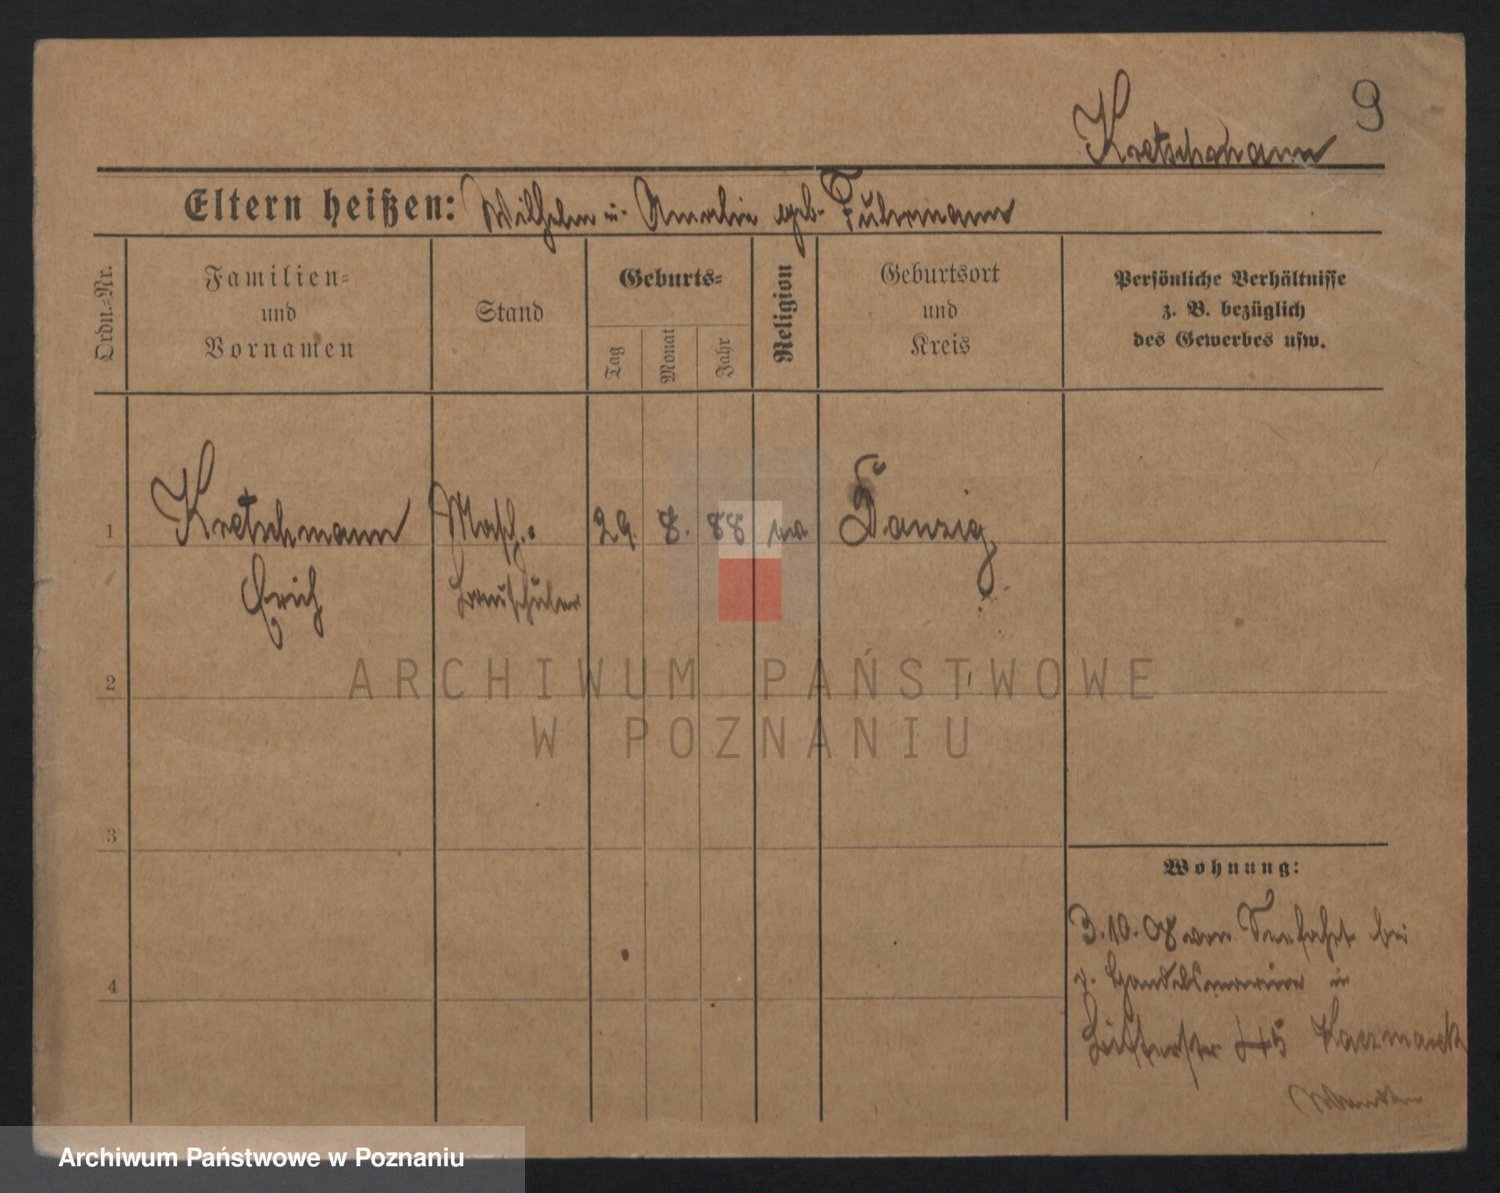 9
Kretschmann
Eltern heißen: Wilhelm u. Amalie geb. Fuhrmann
Ordn.=Nr.
Familien=
und
Vornamen
Stand
Geburts=
Tag
Monat
Jahr
Religion
Geburtsort
und
Kreis
Persönliche Verhältnisse
z. B. bezüglich
des Gewerbes usw.
1
Kretschmann
Erich
Masch.=
bauschüler
29. 8. 88
Danzig
2
ARCHIWUM PAŃSTWOWE
W POZNANIU
3
4
Wohnung:
3.10.08 von Seefahrt bei
d. Handelsmarine in
45 Kaczmarek
Archiwum Państwowe w Poznaniu